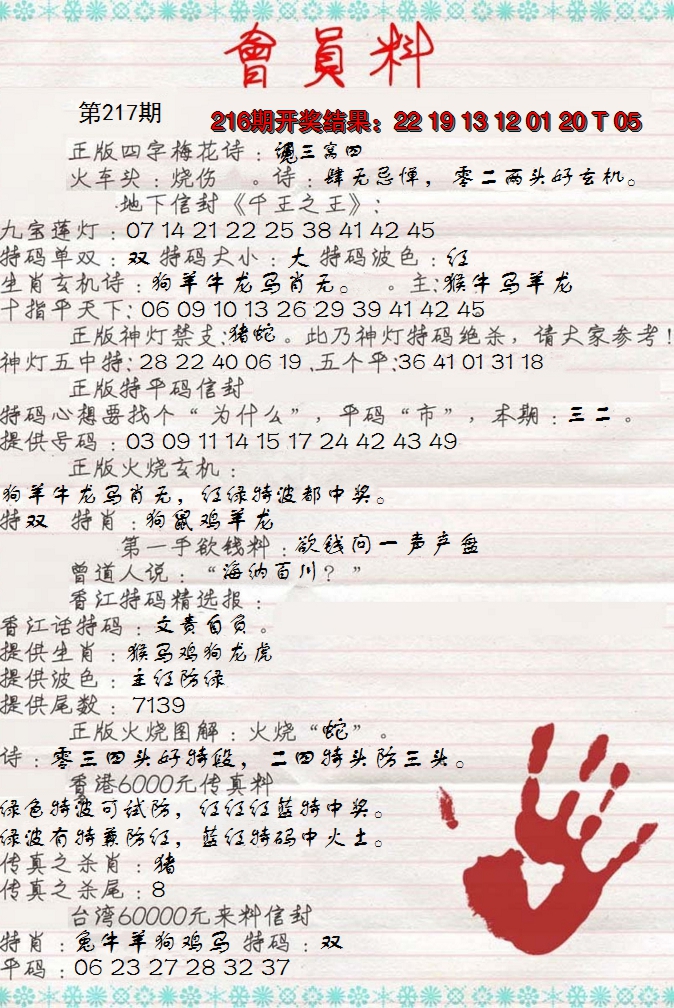 會員料
第217期
216期开奖结果：22 19 13 12 01 20 T 05
正版四字梅花诗：三窝四
火车头：烧伤 。诗：肆无忌惮，零二两头好玄机。
地下信封《千王之王》：
九宝莲灯：07 14 21 22 25 38 41 42 45
特码单双：双 特码大小：大 特码波色：红
生肖玄机诗：狗羊牛龙马肖无。 。主：猴牛马羊龙
十指平天下：06 09 10 13 26 29 39 41 42 45
正版神灯禁支：猪蛇。此乃神灯特码绝杀，请大家参考！
神灯五中特：28 22 40 06 19 .五个平：36 41 01 31 18
正版特平码信封
特码心想要找个“为什么”，平码“市”，本期：三二。
提供号码：03 09 11 14 15 17 24 42 43 49
正版火烧玄机：
狗羊牛龙马肖无，红绿特波都中奖。
特双 特肖：狗鼠鸡羊龙
第一手欲钱料：欲钱问一声产盘
曾道人说：“海纳百川？”
香江特码精选报：
香江话特码：文责自负。
提供生肖：猴马鸡狗龙虎
提供波色：主红防绿
提供尾数：7139
正版火烧图解：火烧“蛇”。
诗：零三四头好特段，二四特头防三头。
香港6000元传真料
绿色特波可试防，红红红蓝特中奖。
绿波有特兼防红，蓝红特码中火土。
传真之杀肖：猪
传真之杀尾：8
台湾60000元来料信封
特肖：兔牛羊狗鸡马 特码：双
平码：06 23 27 28 32 37